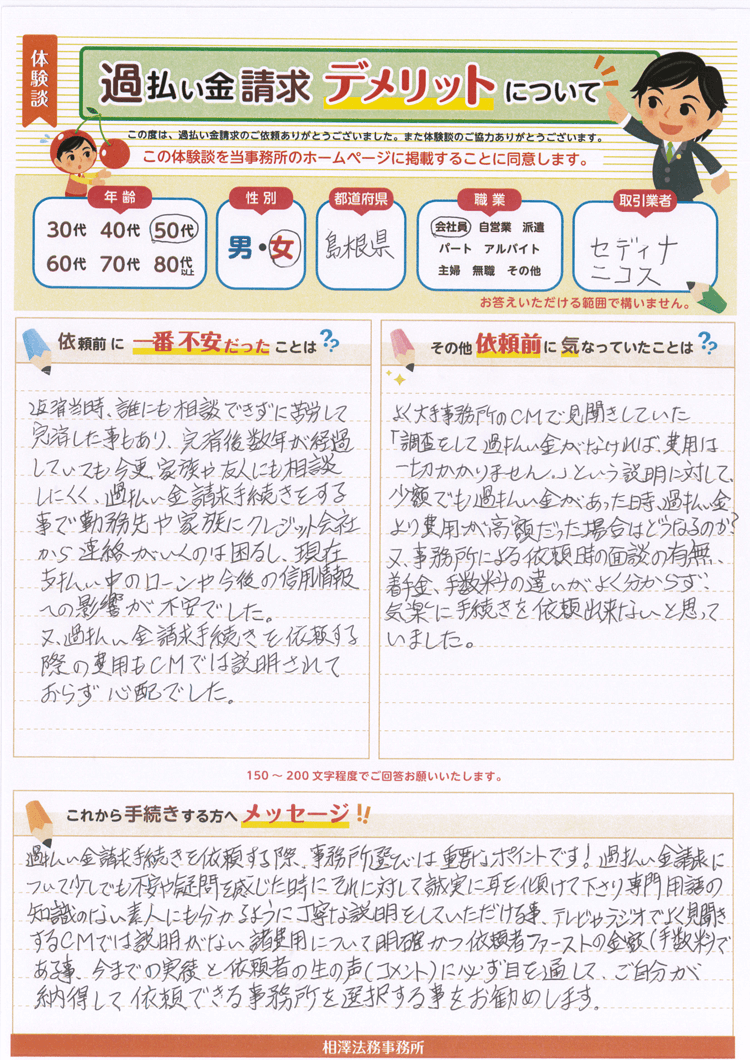 体験談
過払い金請求 デメリット について
この度は、過払い金請求のご依頼ありがとうございました。また体験談のご協力ありがとうございます。
この体験談を当事務所のホームページに掲載することに同意します。
年齢
30代 40代 50代
60代 70代 80代以上
性別
男・女
都道府県
島根県
職業
会社員 自営業 派遣
パート アルバイト
主婦 無職 その他
取引業者
セディナ
ニコス
お答えいただける範囲で構いません。
依頼前に 一番不安だった ことは??
返済当時、誰にも相談できずに苦労して
完済した事もあり、完済後数年が経過
していても今更、家族や友人にも相談
しにくく、過払い金請求手続きをする
事で勤務先や家族にクレジット会社
から連絡がいくのは困るし、現在
支払い中のローンや今後の信用情報
への影響が不安でした。
又、過払い金請求手続きを依頼する
際の費用もCMでは説明されて
おらず心配でした。
その他 依頼前に気なっていたことは??
よく大手事務所のCMで見聞きしていた
「調査をして過払い金がなければ、費用は
一切かかりません。」という説明に対して、
少額でも過払い金があった時、過払い金
より費用が高額だった場合はどうなるのか?
又、事務所による依頼時の面談の有無、
着手金、手数料の違いがよく分からず、
気楽に手続きを依頼出来ないと思って
いました。
150〜200文字程度でご回答お願いいたします。
これから手続きする方へ メッセージ!!
過払い金請求手続きを依頼する際、事務所選びは重要なポイントです!過払い金請求に
ついて少しでも不安や疑問を感じた時にそれに対して誠実に耳を傾けて下さり専門用語の
知識のない素人にも分かるように丁寧な説明をしていただける事、テレビやラジオでよく見聞き
するCMでは説明がない諸費用について明確かつ依頼者ファーストの金額(手数料)で
ある事、今までの実績と依頼者の生の声(コメント)に必ず目を通して、ご自分が
納得して依頼できる事務所を選択する事をお勧めします。
相澤法務事務所